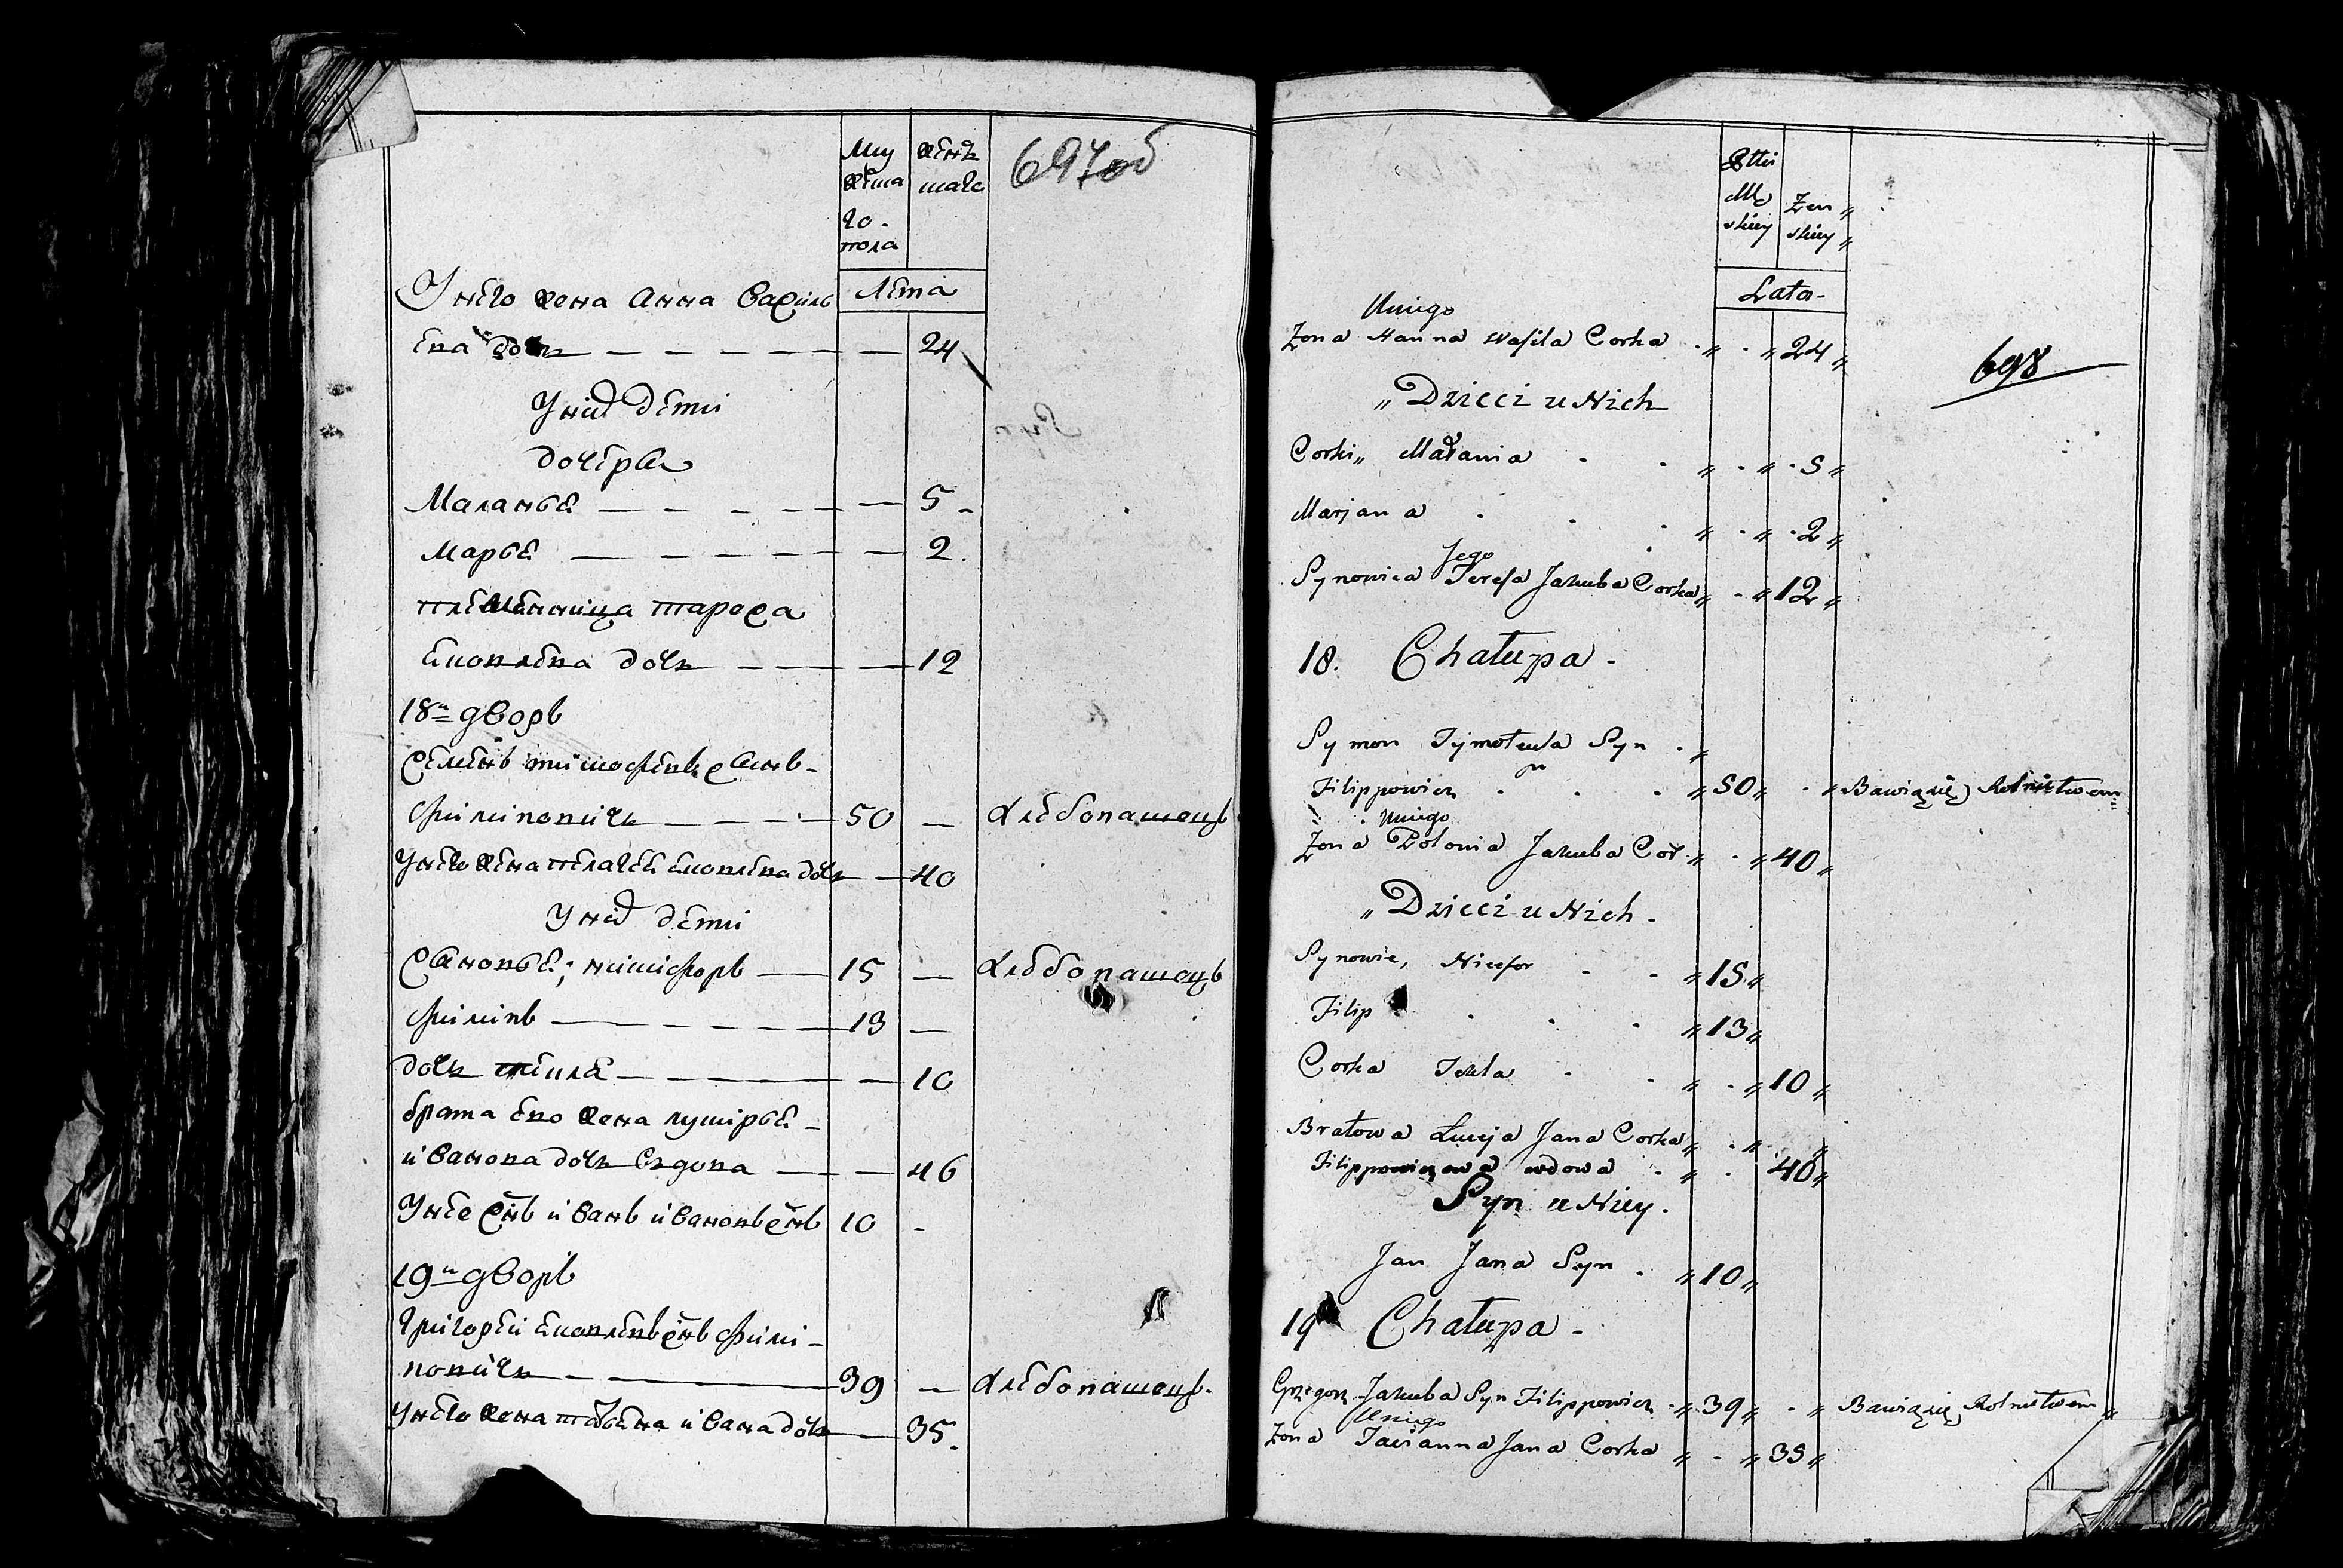 Му
жеска
го
пола
женъ
скаго
697об
Лета
У него жена Анна василь
ева дочь 24
У них дети
дочерьи
Маланья 5
Марья 2.
племенница тареса
яковлева дочь 12
18й дворъ
Семенъ тимофеевъ сынъ
филиповичь 50 — хлебопашецъ
У него жена пелагея яковлева дочь 40
У них дети
Сыновья; никифоръ 15 — хлебопашецъ
филипъ 13 —
дочь текла 10
брата ево жена лукирья
иванова дочь вдова 46
У нее снъ иванъ ивановъ снъ 10 -
19й дворъ
григорей яковлевъ снъ фили-
повичь 39 — хлебопашецъ.
У него жена татьяна ивана дочь 35.
Płci
Mę
skiey
Zen
skiey
Lata
698
Uniego
Zona Hanna Wasila Corka 24
Dzieci u Nich
Corki Małania 5
Marjana 2
Jego
Synowica Teresa Jakuba Corka 12
18. Chałupa
Symon Tymoteusza Syn
Filippowicz 50 Bawiąsię Rolnictwem
Uniego
Zona Polonia Jakuba Cor 40
Dzieci u Nich
Synowie, Nicefor 15
Filip 13
Corka Tekla 10
Bratowa Łucyja Jana Corka
Filippowiczowa wdowa 46
Syn u Niey.
Jan Jana Syn 10
19 Chałupa
Grzegorz Jakuba Syn Filippowicz 39 Bawiąsię Rolnictwem
Uniego
Zona Tacianna Jana Corka 35